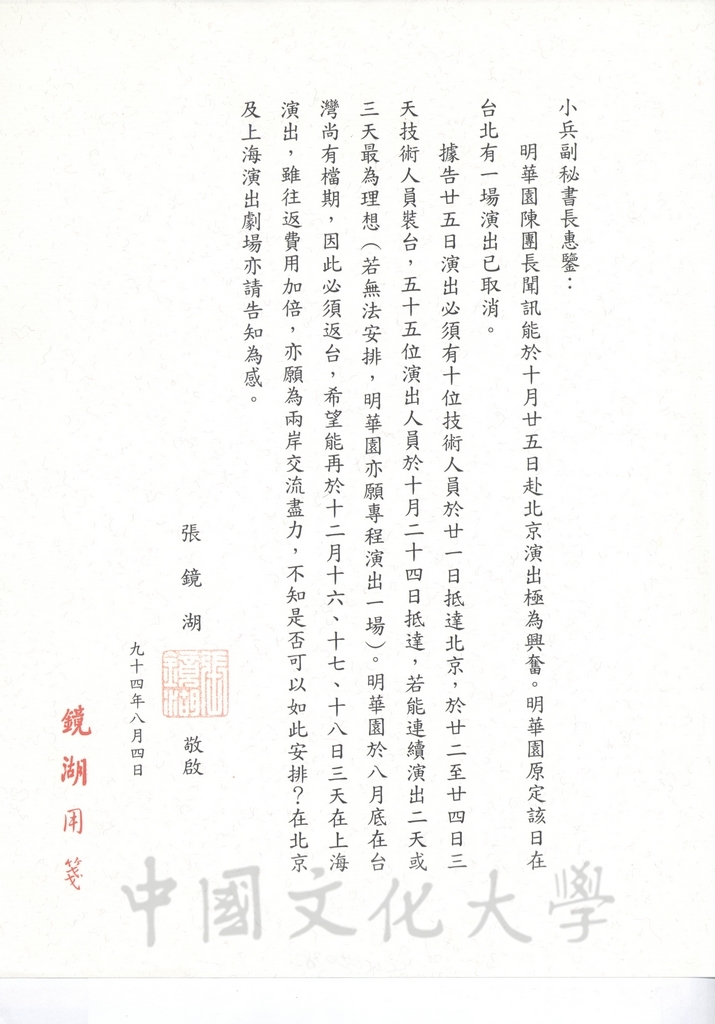 小兵副秘書長惠鑒：
明華園陳團長聞訊能於十月廿五日赴北京演出極為興奮。明華園原定該日在
台北有一場演出已取消。
據告廿五日演出必須有十位技術人員於廿一日抵達北京，於廿二至廿四日三
天技術人員裝台，五十五位演出人員於十月二十四日抵達，若能連續演出二天或
三天最為理想（若無法安排，明華園亦願專程演出一場）。明華園於八月底在台
灣尚有檔期，因此必須返台，希望能再於十二月十六、十七、十八日三天在上海
演出，雖往返費用加倍，亦願為兩岸交流盡力，不知是否可以如此安排？在北京
及上海演出劇場亦請告知為感。
張鏡湖 敬啟
張鏡湖
九十四年八月四日
鏡湖用箋
中國文化大學